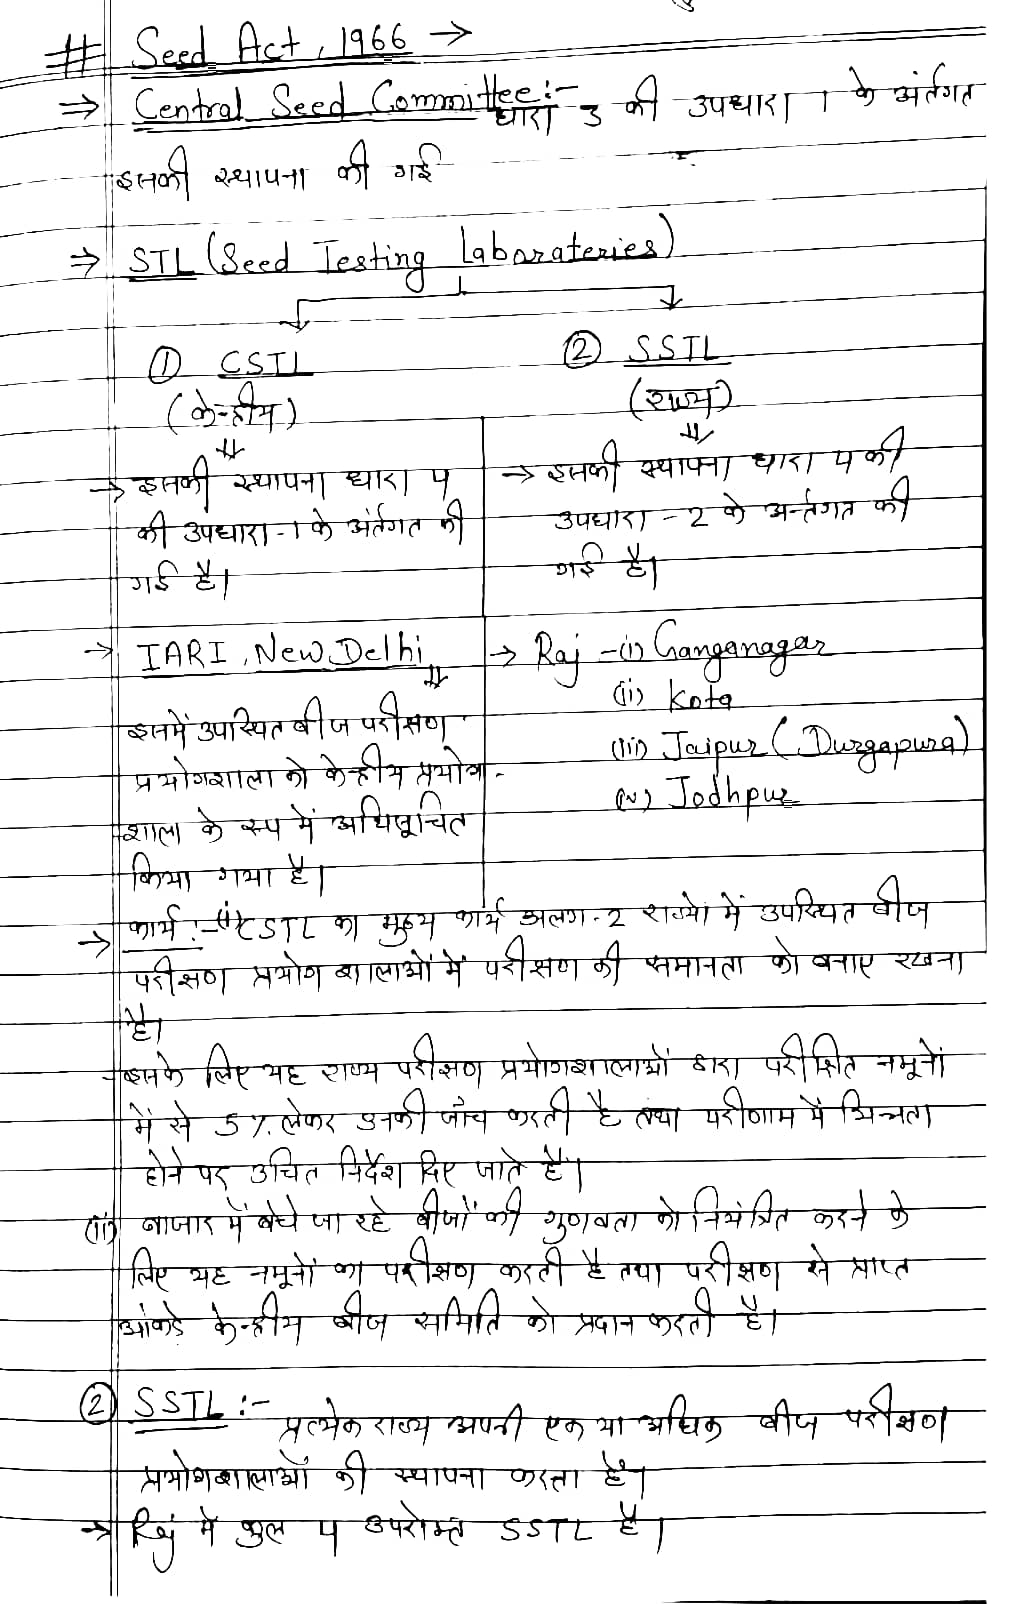 # Seed Act, 1966 →
⇒ Central Seed Committee:- धारा 3 की उपधारा 1 के अंर्तगत
इसकी स्थापना की गई
⇒ STL (Seed Testing Laborateries)
① CSTL
(केन्द्रीय)
→ इसकी स्थापना धारा 4
की उपधारा-1 के अंर्तगत की
गई है।
② SSTL
(राज्य)
→ इसकी स्थापना धारा 4 की
उपधारा -2 के अन्तर्गत की
गई है।
→ IARI, New Delhi
इसमें उपस्थित बीज परीक्षण
प्रयोगशाला को केन्द्रीय प्रयोग-
शाला के रूप में अधिसूचित
किया गया है।
→ Raj -(i) Ganganagar
(ii) Kota
(iii) Jaipur (Durgapura)
(iv) Jodhpur
→ कार्य:-(i) CSTL का मुख्य कार्य अलग-2 राज्यों में उपस्थित बीज
परीक्षण प्रयोगशालाओं में परीक्षण की समानता को बनाए रखना
है।
-इसके लिए यह राज्य परीक्षण प्रयोगशालाओं द्वारा परीक्षित नमूनों
में से 5% लेकर उनकी जाँच करती है तथा परीणाम में भिन्नता
होने पर उचित निर्देश दिए जाते हैं।
(ii) बाजार में बेचे जा रहे बीजों की गुणवता को नियंत्रित करने के
लिए यह नमूनों का परीक्षण करती है तथा परीक्षण से प्राप्त
आंकडे केन्द्रीय बीज समिति को प्रदान करती है।
② SSTL :-
प्रत्येक राज्य अपनी एक या अधिक बीज परीक्षण
प्रयोगशालाओं की स्थापना करता है।
→ Raj में कुल 4 उपरोक्त SSTL है।